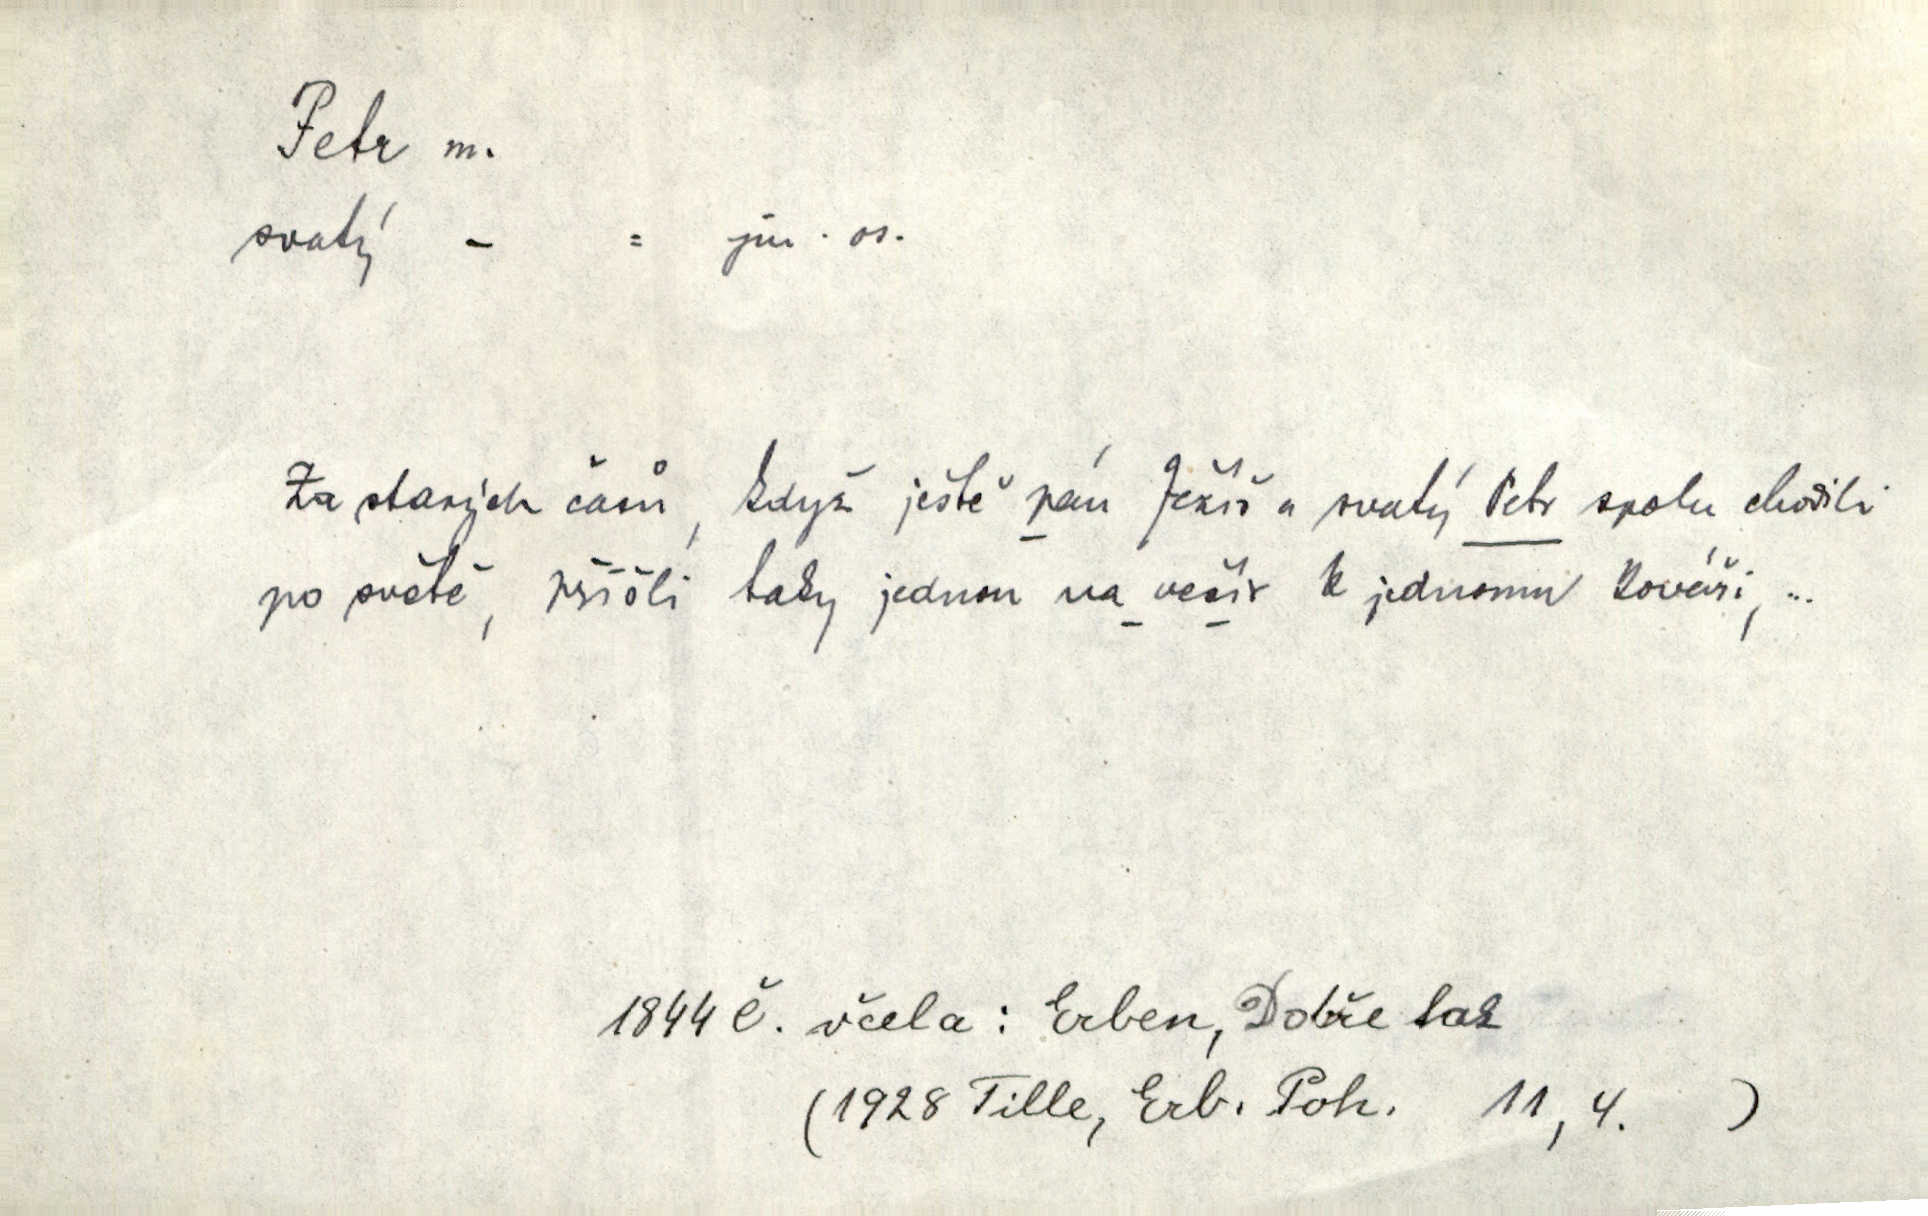 Petr m.
svatý – = jm. os.
Za starých časů, když ještě pán Ježíš a svatý Petr spolu chodili
po světě, přišli taky jednou na večír k jednomu kováři, ...
1844 Č. včela: Erben, Dobře tak
(1928 Tille, Erb. Poh. 11, 4. )